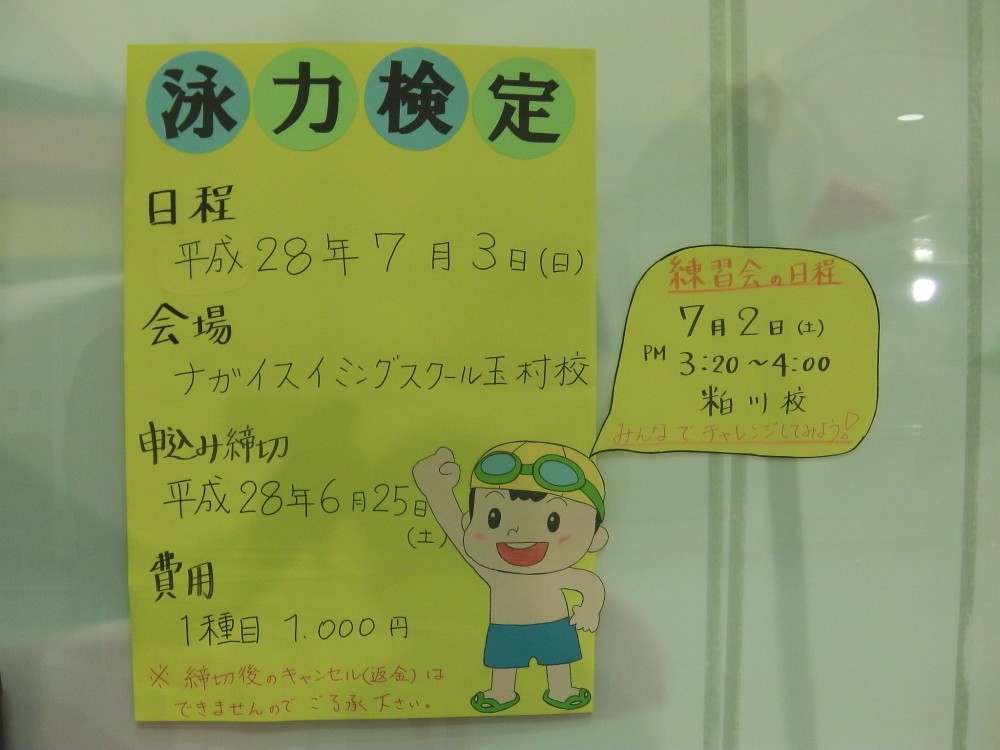 泳力検定
日程
平成28年7月3日(日)
会場
ナガイスイミングスクール玉村校
申込み締切
平成28年6月25日
(土)
費用
1種目 1.000円
※ 締切後のキャンセル(返金)は
できませんので ご了承下さい。
練習会の日程
7月2日(土)
PM 3:20～4:00
粕川校
みんなでチャレンジしてみよう!